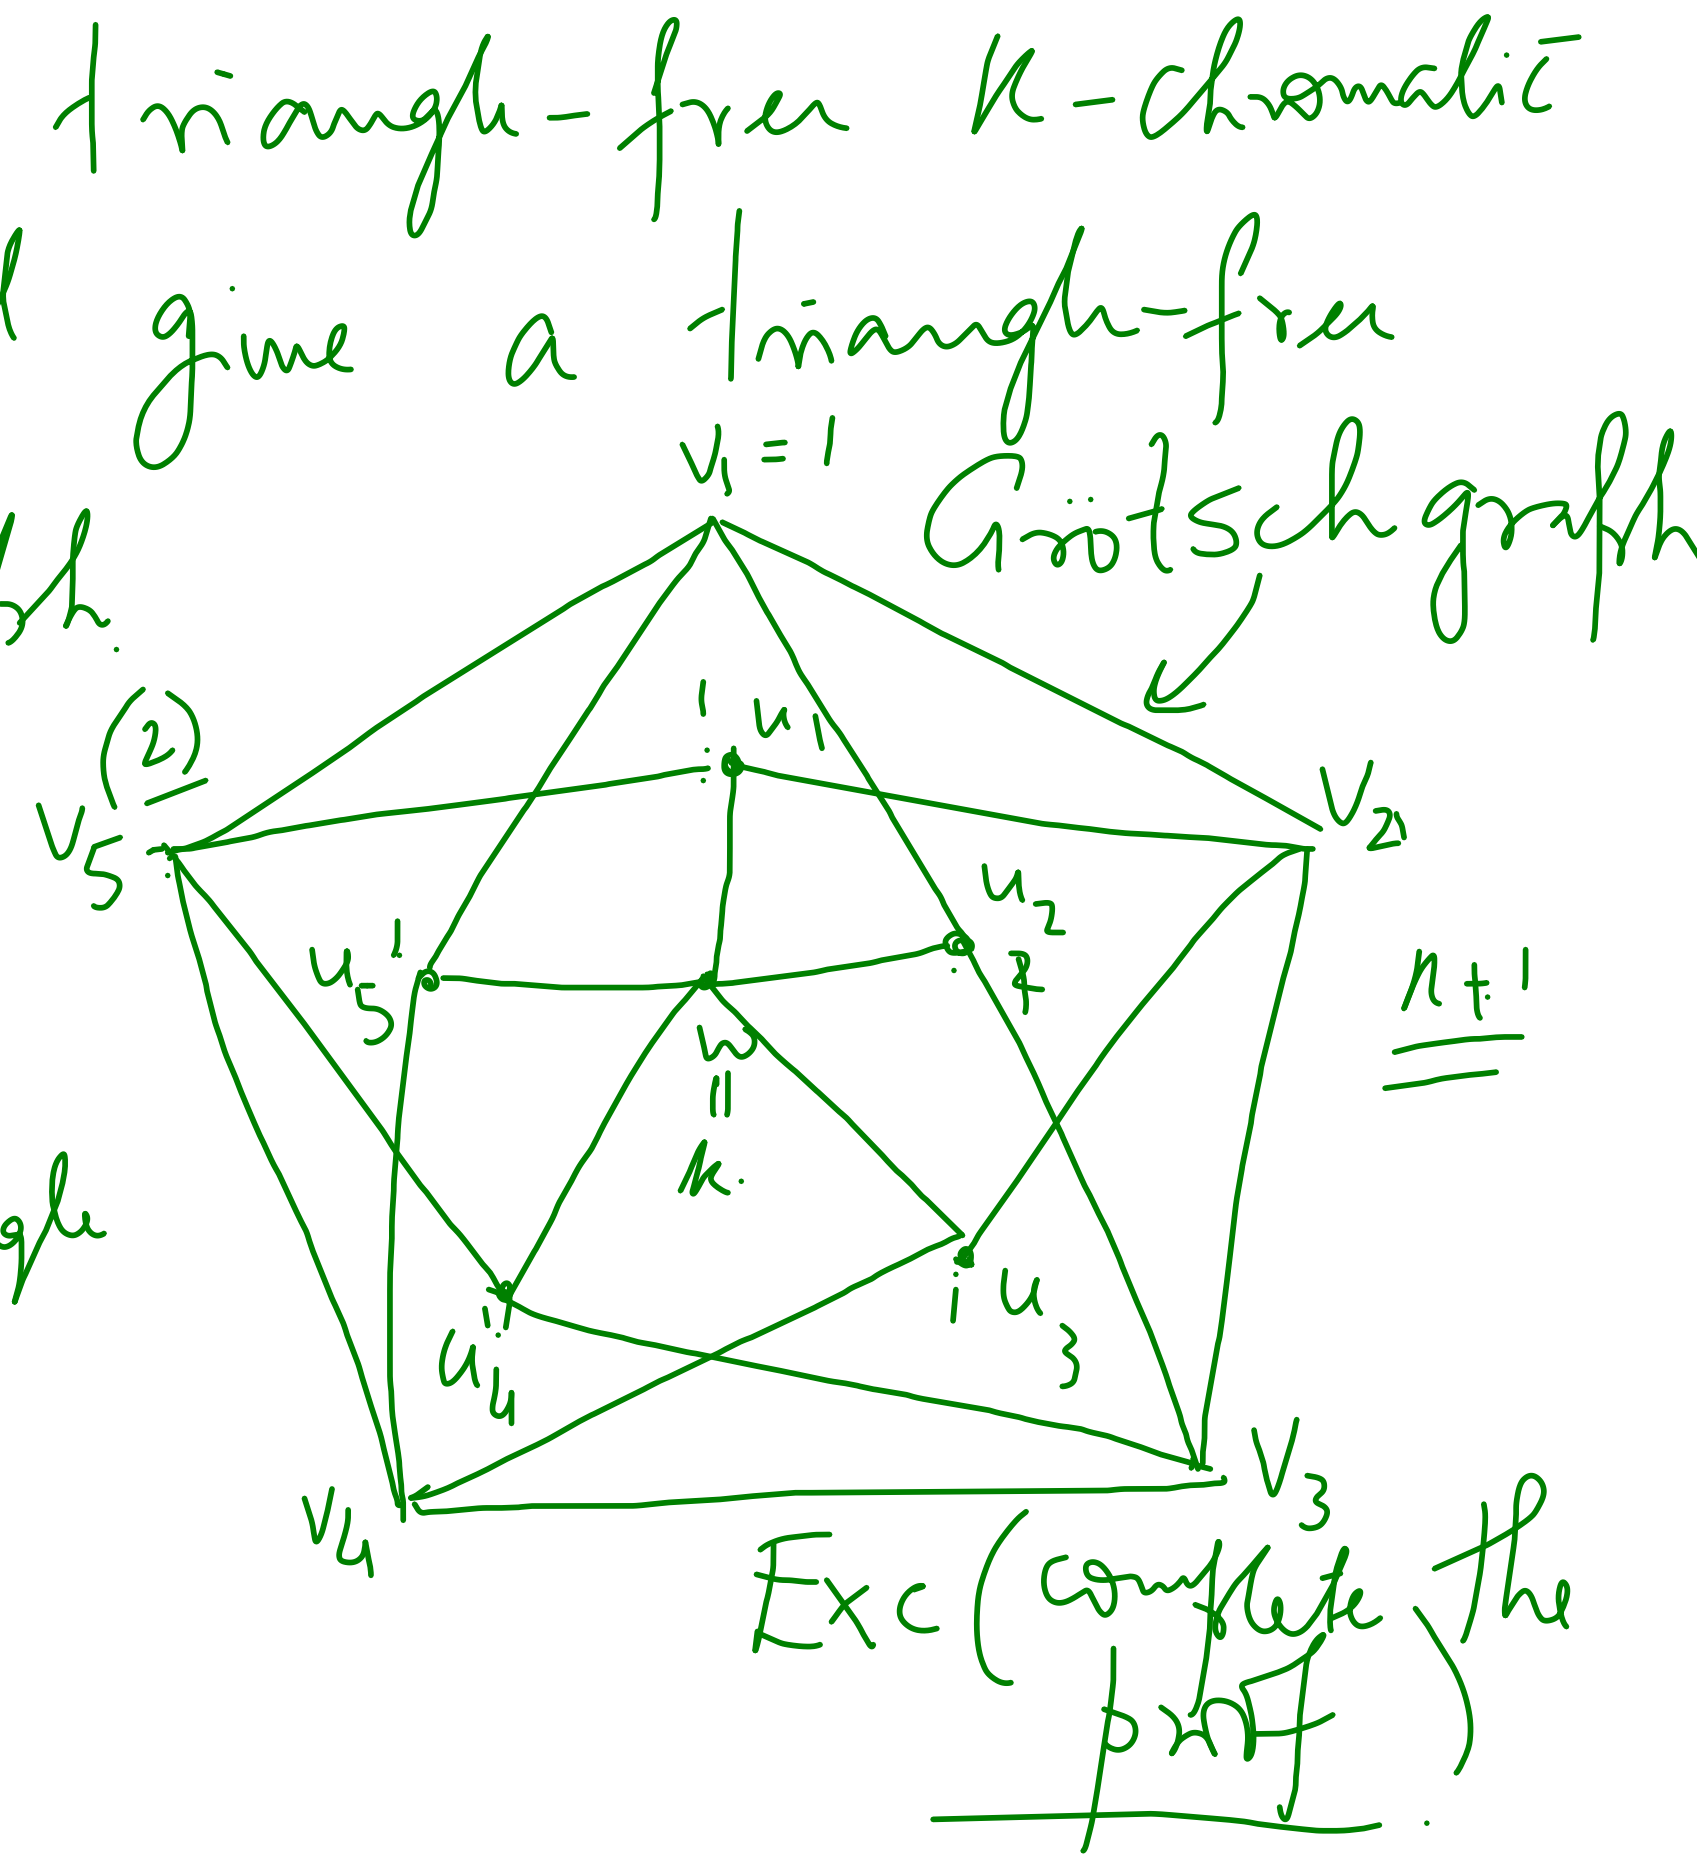 triangle-free K-chromatic
give a triangle-free
v₁ = 1
Grötsch graph
(2)
v₅
u₁
v₂
u₅
u₂
n+1
w
=
k.
u₃
u₄
v₃
v₄
Exc (complete the
proof)